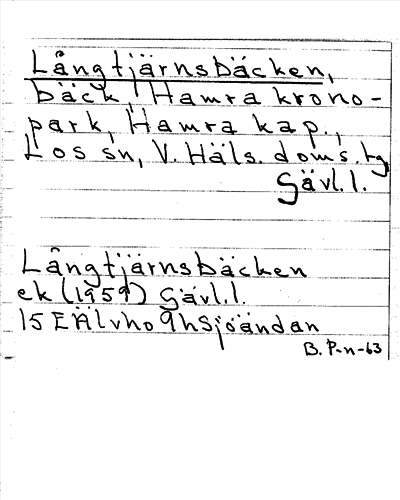 Långtjärnsbäcken,
bäck, Hamra krono-
park, Hamra kap.,
Los sn, V. Häls. doms.
Gävl.l.
Långtjärnsbäcken
ek (1959) Gävl.l.
15 E Älvho 9h Sjöändan
B. P-n-63